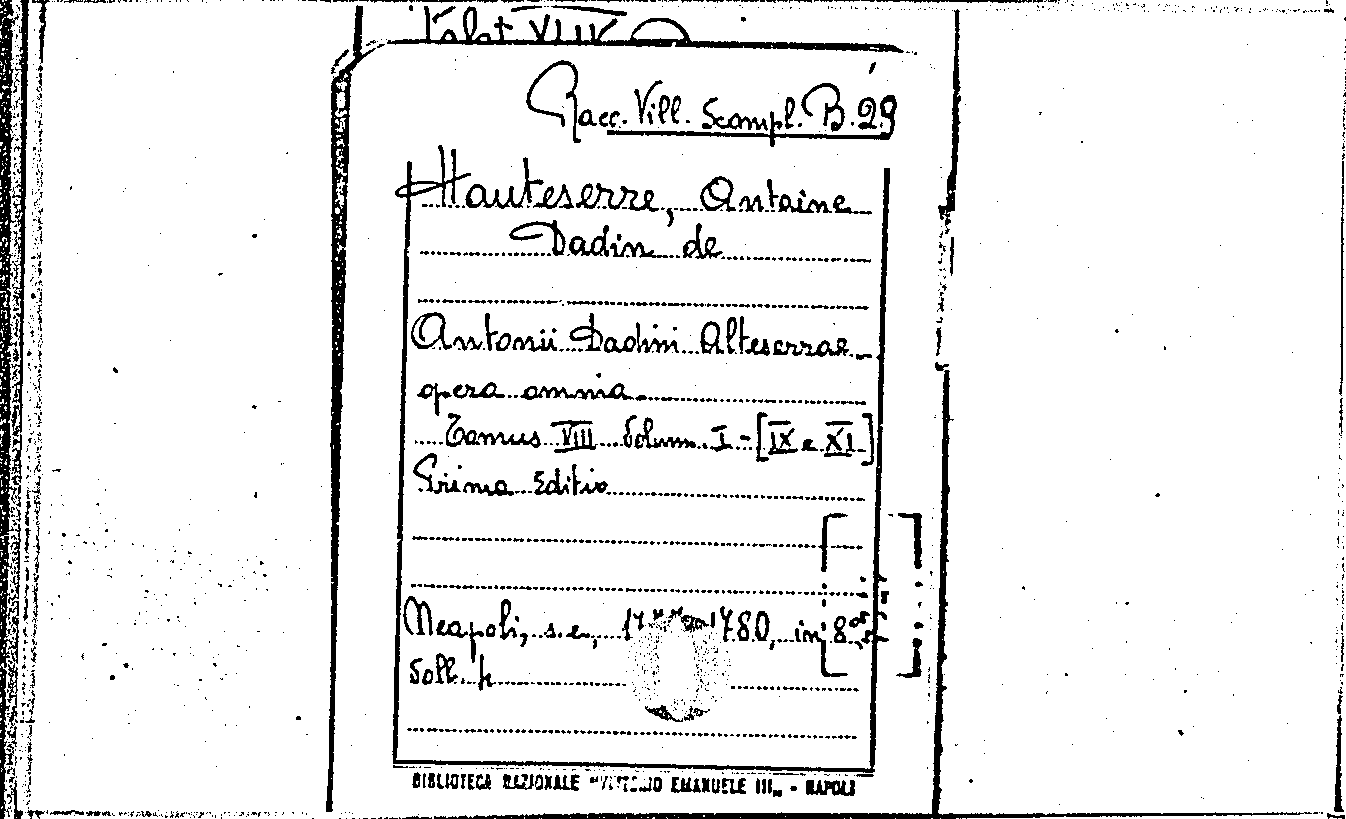 Race. Vill. Scampl. B. 29
Hauteserre, Antoine
Dadin de
Antonii Dadini Alteserrae
opera omnia.
Tomus VIII Volum. I - [IX e XI]
Prima Editio
Neapoli, s.e., 1780, in 8º
Voll. 4
BIBLIOTECA NAZIONALE "VITTORIO EMANUELE III" - NAPOLI